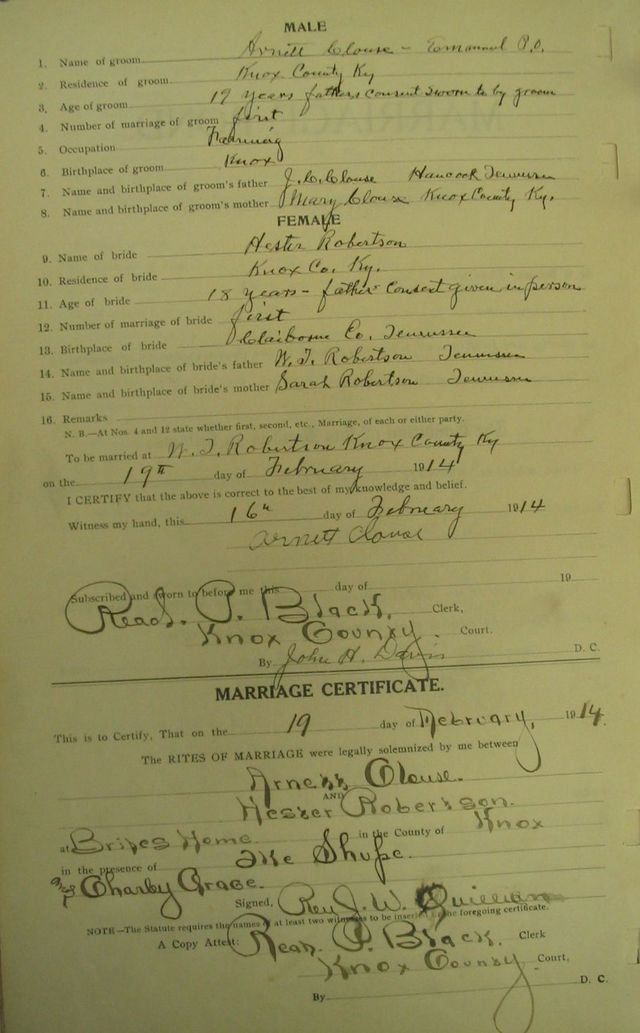 MALE
1. Name of groom Arnett Clouse - Emanuel P.O.
2. Residence of groom Knox County Ky
3. Age of groom 19 years fathers consent sworn to by groom
4. Number of marriage of groom first
5. Occupation Farming
6. Birthplace of groom Knox
7. Name and birthplace of groom's father J. C. Clouse Hancock Tennessee
8. Name and birthplace of groom's mother Mary Clouse Knox County Ky.
FEMALE
9. Name of bride Hester Robertson
10. Residence of bride Knox Co. Ky.
11. Age of bride 18 years - father consent given in person
12. Number of marriage of bride first
13. Birthplace of bride Claiborne Co. Tennessee
14. Name and birthplace of bride's father W. T. Robertson Tennessee
15. Name and birthplace of bride's mother Sarah Robertson Tennessee
16. Remarks
N. B.—At Nos. 4 and 12 state whether first, second, etc., Marriage, of each or either party.
To be married at W. T. Robertson Knox County Ky
on the 19th day of February 1914
I CERTIFY that the above is correct to the best of my knowledge and belief.
Witness my hand, this 16th day of February 1914
Arnett Clouse
Subscribed and sworn to before me this day of 19
Read P. Black, Clerk,
Knox County Court.
By John H. Davis D. C.
MARRIAGE CERTIFICATE.
This is to Certify, That on the 19 day of February, 1914.
The RITES OF MARRIAGE were legally solemnized by me between
Arnett Clouse.
AND
Hester Robertson.
at Brides Home in the County of Knox
in the presence of Ike Shupe.
and Charby Grace.
Signed, Rev J. W. Quillian
NOTE—The Statute requires the names of at least two witnesses to be inserted in the foregoing certificate.
A Copy Attest: Read P. Black. Clerk
Knox County Court,
By D. C.